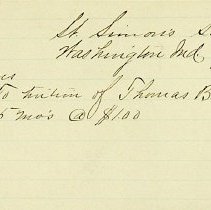 St Simon's S
Washington Ind
To tuition of Thomas B
5 mo's @ $100